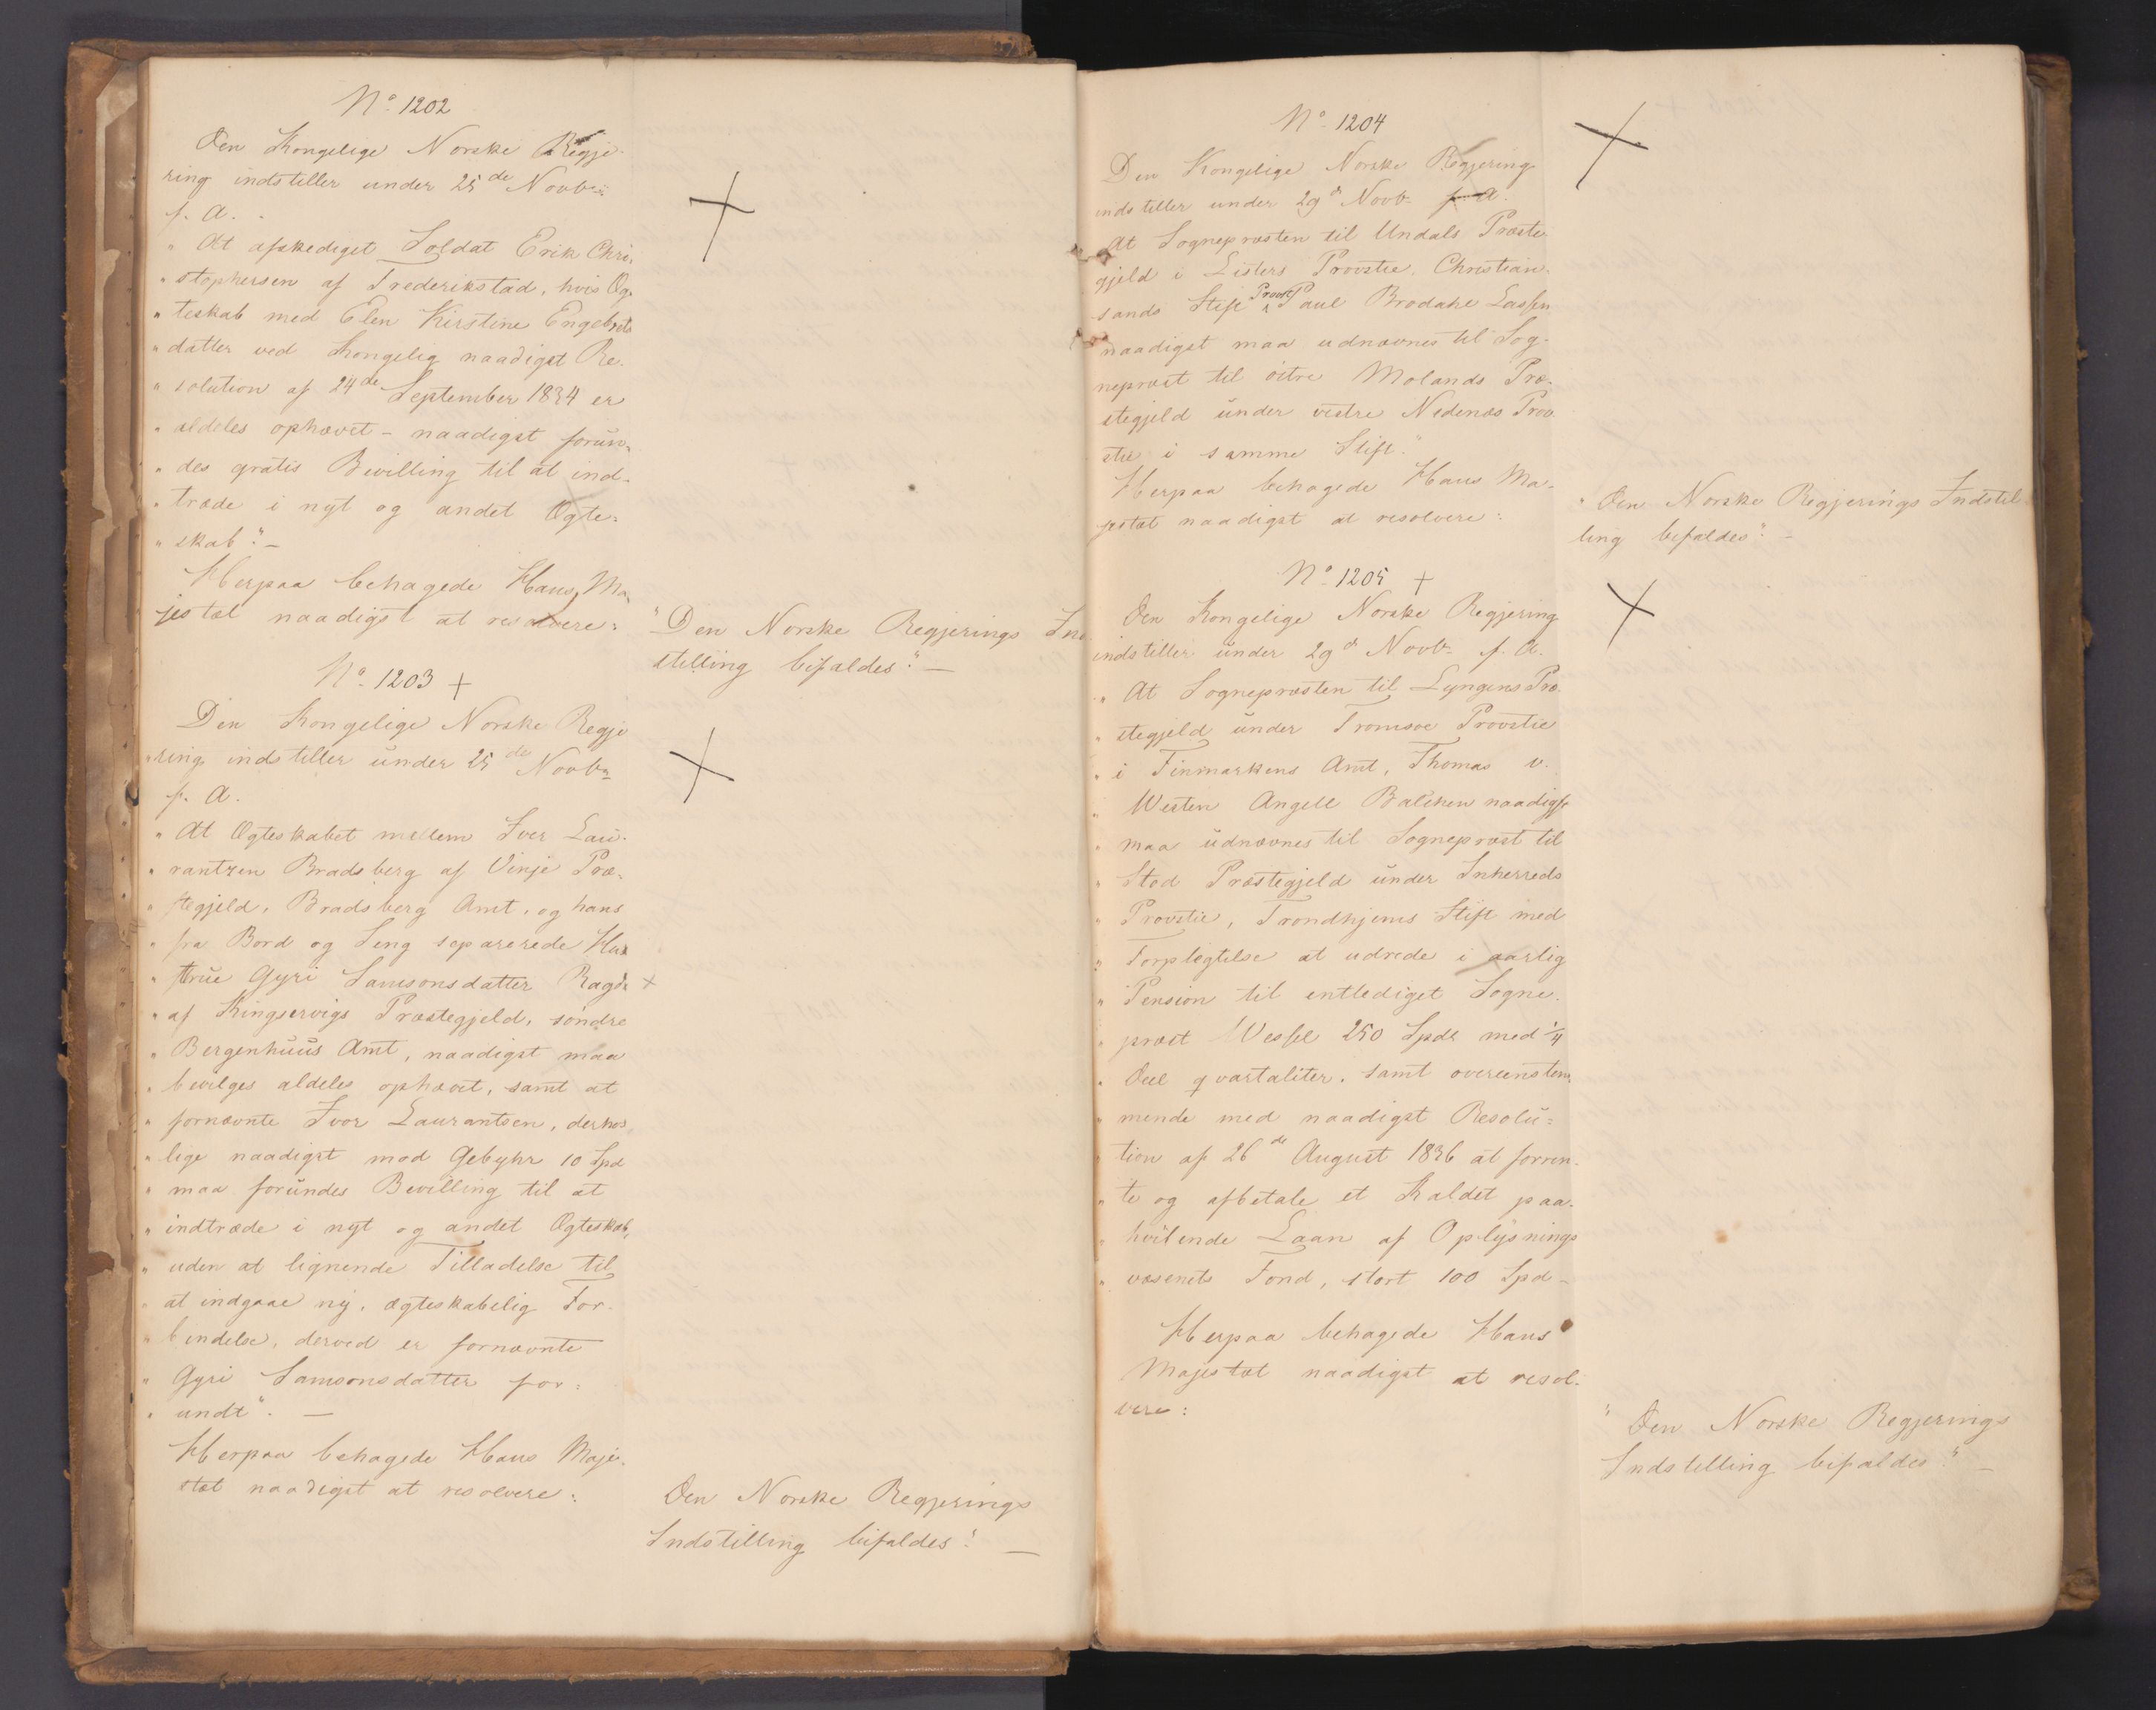 No. 1202
Den Kongelige Norske Regje-
ring indstiller under 25de Novbr.
f. A.
" At afskediget Soldat Erik Chri-
" stophersen af Frederikstad, hvis Æg-
" teskab med Elen Kirstine Engebrets
" datter ved Kongelig naadigst Re-
" solution af 24de September 1834 er
" aldeles ophævet - naadigst forun-
" des gratis Bevilling til at ind-
" træde i nyt og andet Ægte-
" skab". -
Herpaa behagede Hans Ma-
jestæt naadigst at resolvere:
" Den Norske Regjerings Ind-
stilling bifaldes". -
No. 1203 +
Den Kongelige Norske Regje
ring indstiller under 25de Novbr
f. A.
" At Ægteskabet mellem Iver Lau-
" rantzen Bradsberg af Vinje Præ-
" stegjeld, Bradsberg Amt, og hans
" fra Bord og Seng separerede Hu-
" strue Gyri Samsonsdatter Ragde +
" af Kingservigs Præstegjeld, søndre
" Bergenhuus Amt, naadigst maa
" bevilges aldeles ophævet, samt at
" fornævnte Iver Laurantsen, derhos
" lige naadigst mod Gebyhr 10 Spd
" maa forundes Bevilling til at
" indtræde i nyt og andet Ægteskab,
" uden at lignende Tilladelse til
" at indgaae ny, ægteskabelig For-
" bindelse, derved er fornævnte
" Gyri Samsonsdatter for-
" undt". -
Herpaa behagede Hans Maje-
stæt naadigst at resolvere:
Den Norske Regjerings
Indstilling bifaldes". -
No. 1204
Den Kongelige Norske Regjering
indstiller under 29d Novb. f. A.
At Sognepræsten til Undals Præste
gjeld i Listers Provstie, Christian-
sands Stift Provst Paul Brodahl Lassen
naadigst maa udnævnes til Sog-
nepræst til øitre Molands Præ-
stegjeld under vestre Nedenæs Prov
stie i samme Stift".
Herpaa behagede Hans Ma-
jestæt naadigst at resolvere:
" Den Norske Regjerings Indstil
ling bifaldes". -
No. 1205 +
Den Kongelige Norske Regjering
indstiller under 29d Novb. f. A.
" At Sognepræsten til Lyngens Præ-
" stegjeld under Tromsøe Provstie
" i Finmarkens Amt, Thomas v.
" Westen Angell Balchen naadigst
" maa udnævnes til Sognepræst til
" Stod Præstegjeld under Inherreds
" Provstie, Trondhjems Stift med
" Forpligtelse at udrede i aarlig
" Pension til entlediget Sogne-
" præst Wessel 250 Spdr med 1/4
" Deel qvartaliter, samt overeenstem-
" mende med naadigst Resolu-
" tion af 26de August 1836 at forren-
" te og afbetale et Kaldet paa-
" hvilende Laan af Oplysnings
" væsenets Fond, stort 100 Spd -
Herpaa behagede Hans
Majestæt naadigst at resol-
vere:
" Den Norske Regjerings
Indstilling bifaldes". -